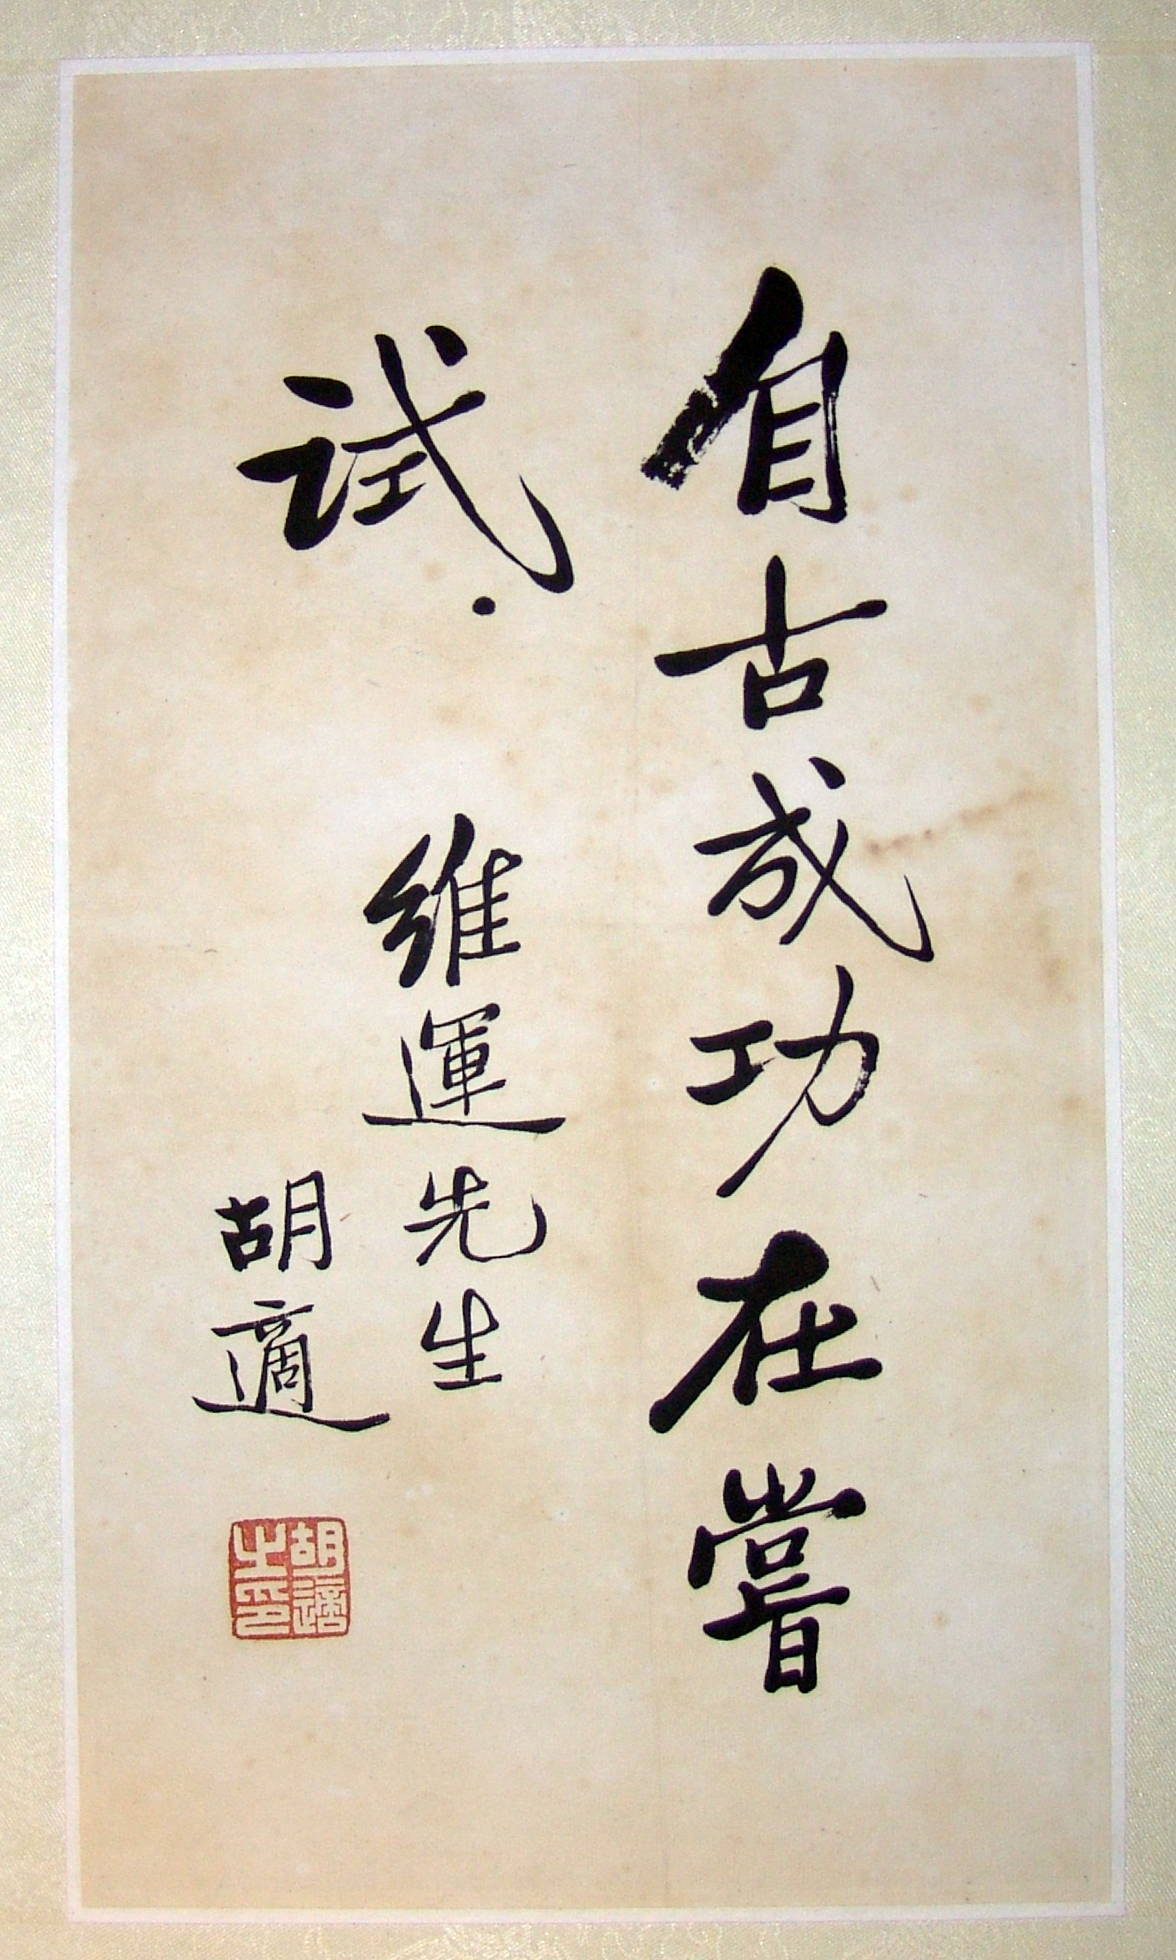 自古成功在嘗
試.
維運先生
胡適
胡適之印